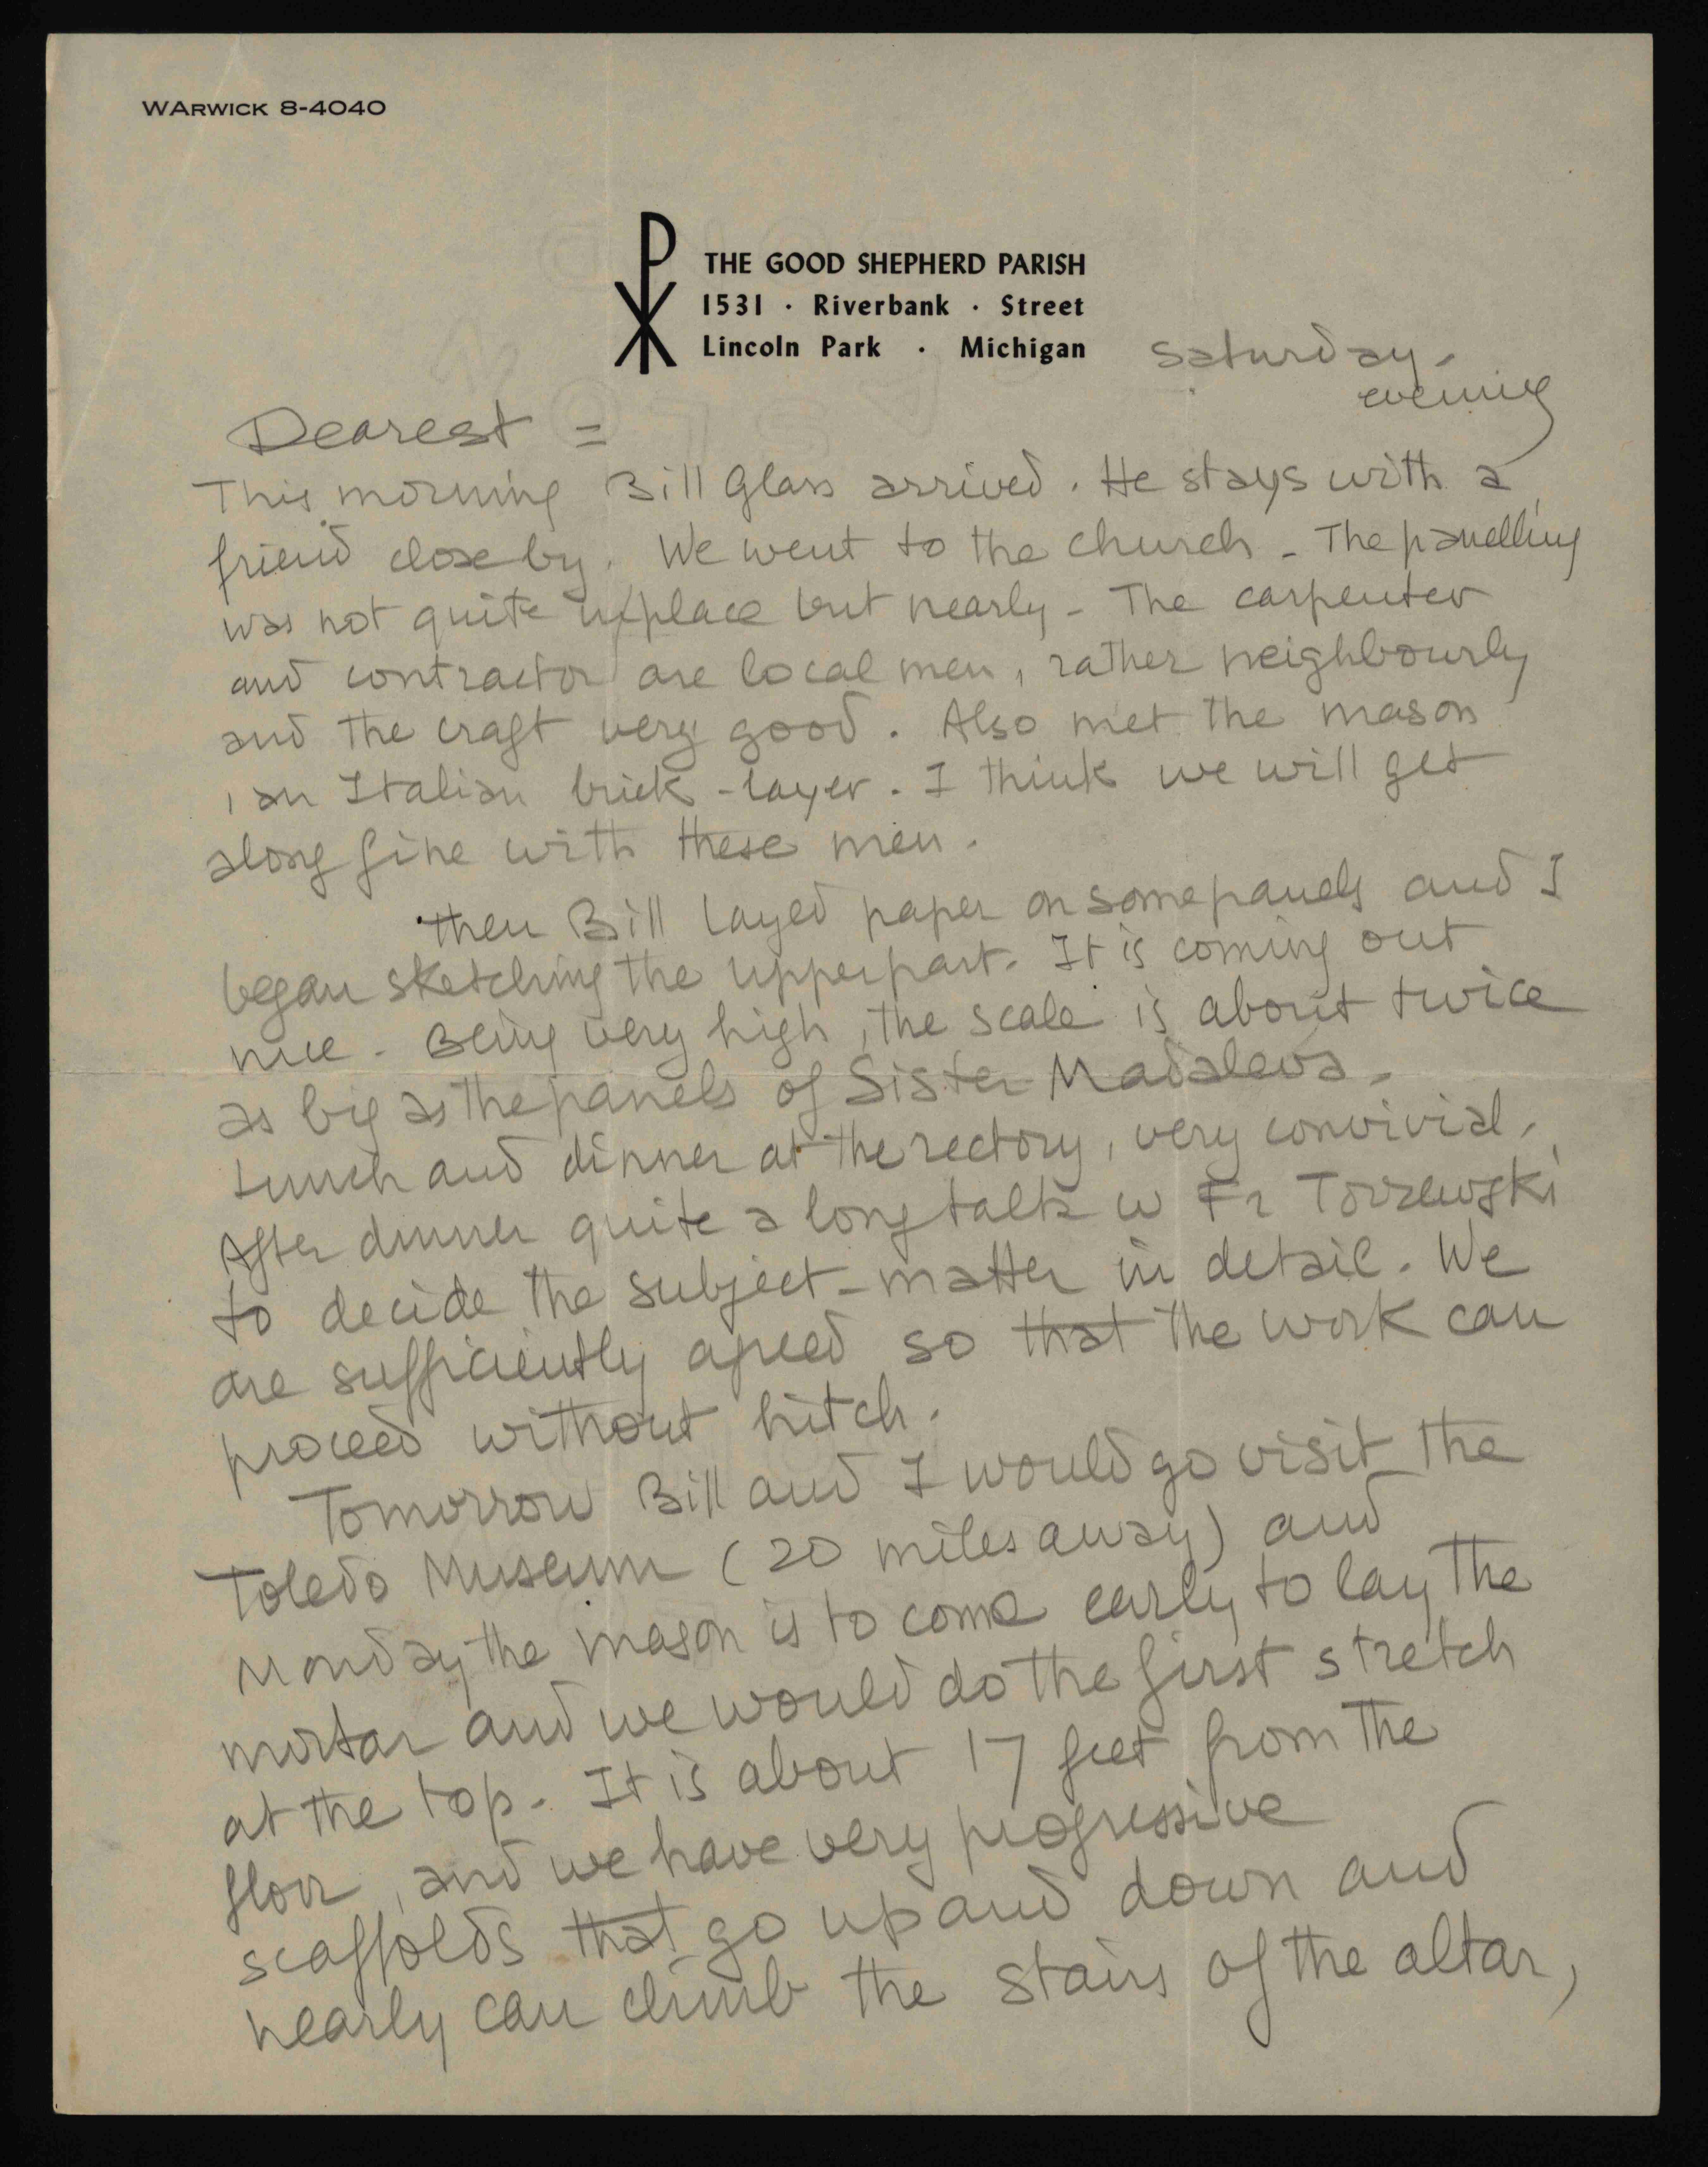 WARWICK 8-4040
THE GOOD SHEPHERD PARISH
1531 · Riverbank · Street
Lincoln Park · Michigan
Saturday.
evening
Dearest =
This morning Bill Glass arrived. He stays with a
friend close by. We went to the church - The panelling
was not quite in place but nearly - The carpenter
and contractor are local men, rather neighbourly
and the craft very good. Also met the mason
, an Italian brick-layer. I think we will get
along fine with these men.
Then Bill layed paper on some panels and I
began sketching the upper part. It is coming out
nice - Being very high, the scale is about twice
as big as the panels of Sister Madaleva.
Lunch and dinner at the rectory, very convivial.
After dinner quite a long talk w Fr Torzewski
to decide the subject-matter in detail. We
are sufficiently agreed so that the work can
proceed without hitch.
Tomorrow Bill and I would go visit the
Toledo Museum (20 miles away) and
Monday the mason is to come early to lay the
mortar and we would do the first stretch
at the top. It is about 17 feet from the
floor, and we have very progressive
scaffolds that go up and down and
nearly can climb the stairs of the altar,